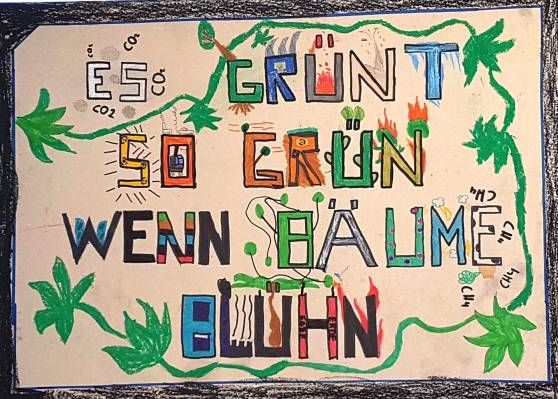 CO2 CO2
ES GRÜNT
CO2
CO2
SO GRÜN
CH4
WENN BÄUME
CH4
CH4
CH4
BLUHN